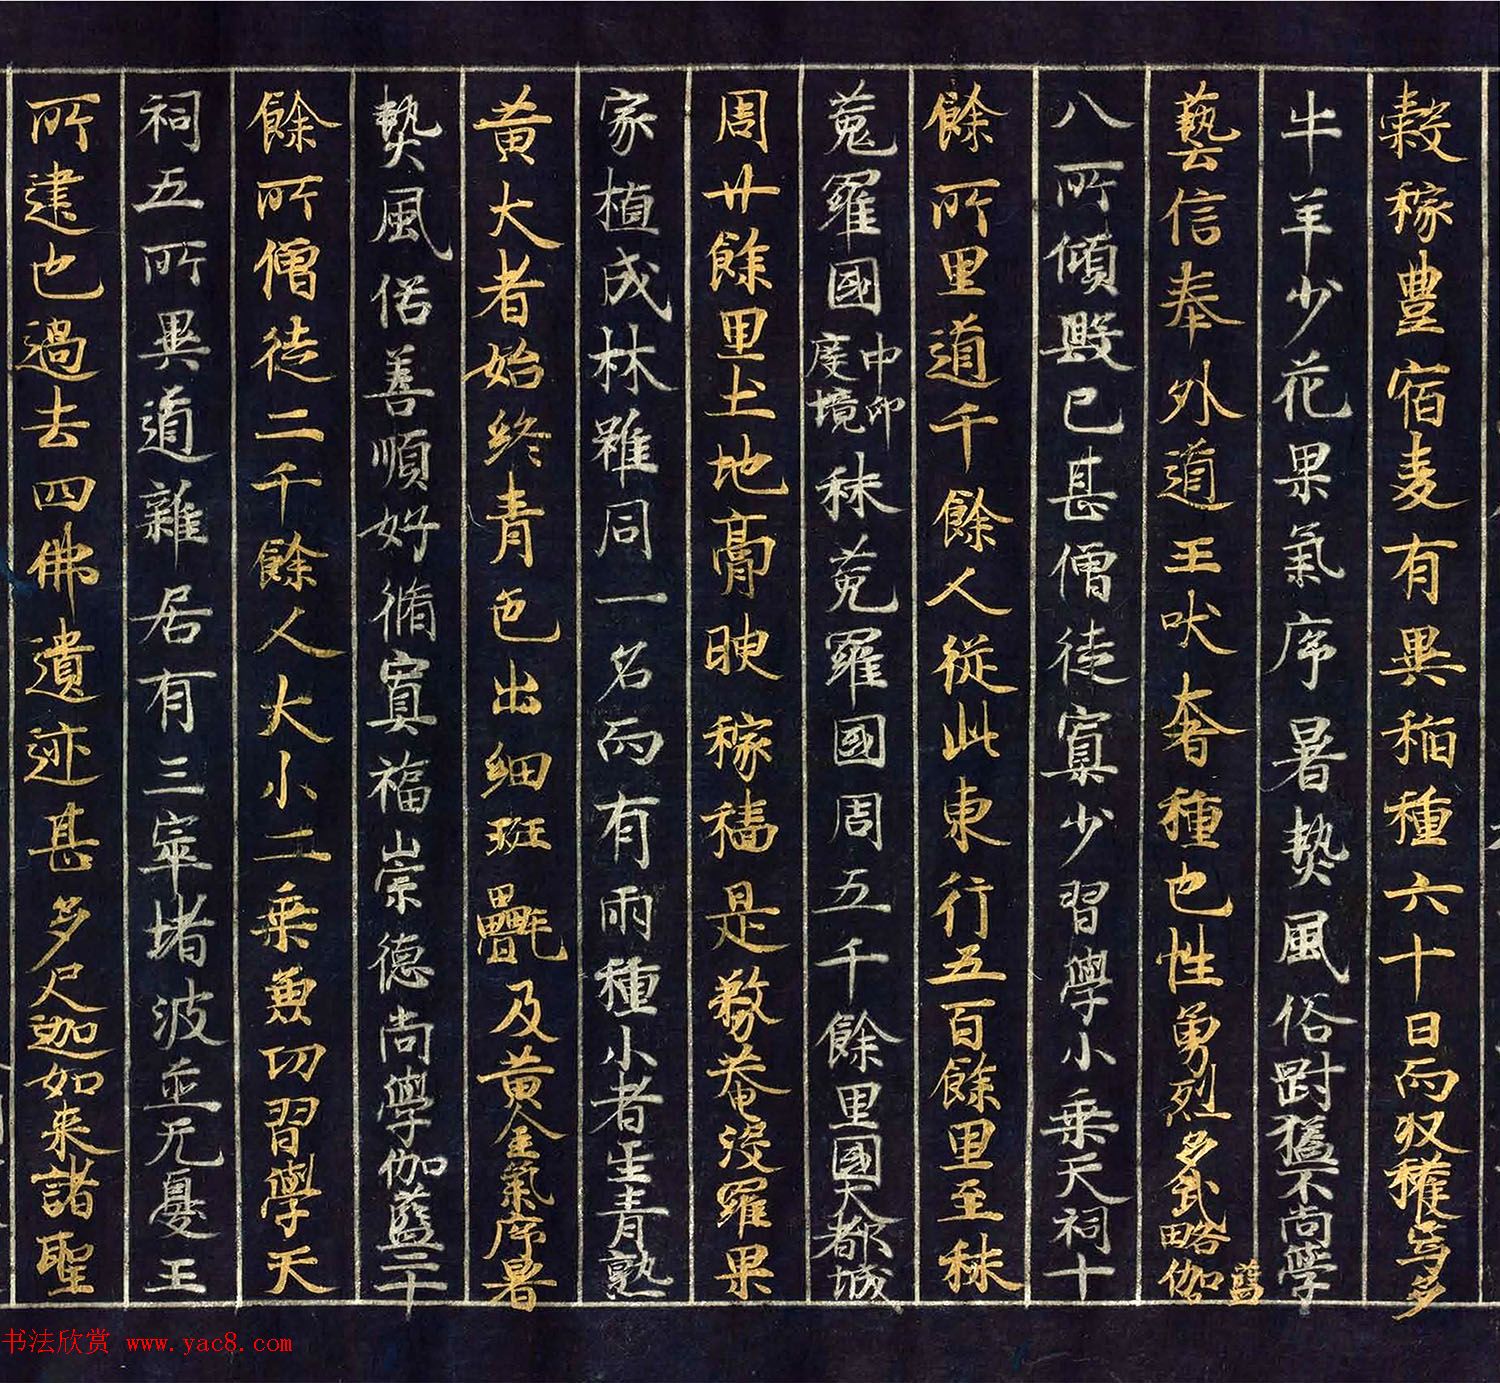 穀稼豊宿麦有異稻種六十日而収穫焉多
牛羊少花果氣序暑熱風俗尠猛不尚學
藝信奉外道王吠奢種也性勇烈多武略伽藍
八所傾毀已甚僧徒寡少習學小乗天祠十
餘所里道千餘人從此東行五百餘里至秣
菟羅國中印度境秣菟羅國周五千餘里國大都城
周廿餘里土地膏腴稼穡是務菴没羅果
家植成林雖同一名而有兩種小者生青熟
黄大者始終青色出細班氎及黄金氣序暑
熱風俗善順好脩冥福崇德尚學伽藍二十
餘所僧徒二千餘人大小二乗兼切習學天
祠五所異道雜居有三窣堵波並无憂王
所建也過去四佛遺迹甚多尺迦如来諸聖
书法欣赏 www.yac8.com